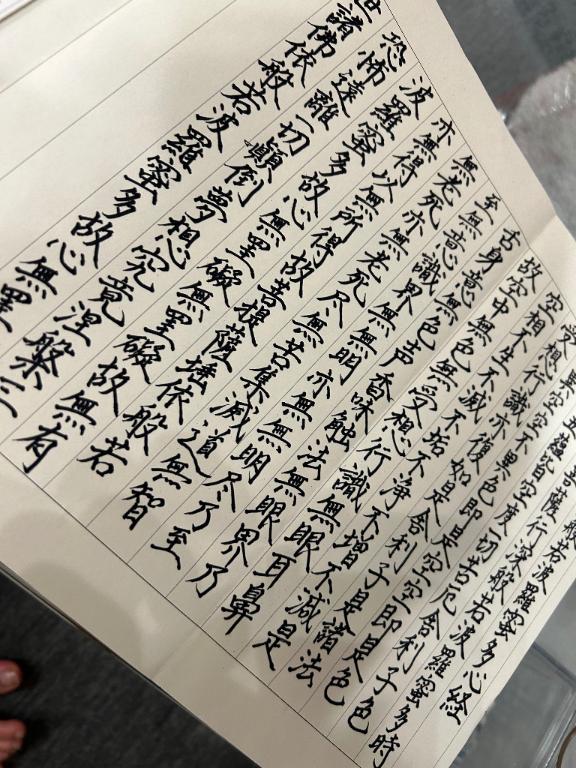 般若波羅蜜多心経
菩薩行深般若波羅蜜多時
五蘊皆空度一切苦厄舎利子
異空空不異色即是空空即是色
受想行識亦復如是舎利子是諸法
空相不生不滅不垢不浄不増不減是
故空中無色無受想行識無眼耳鼻
舌身意無色声香味触法無眼界乃
至無意識界無無明亦無無明尽乃至
無老死亦無老死尽無苦集滅道無智
亦無得以無所得故菩提薩埵依般若
波羅蜜多故心無罣礙無罣礙故無有
恐怖遠離一切顛倒夢想究竟涅槃三
世諸佛依般若波羅蜜多故